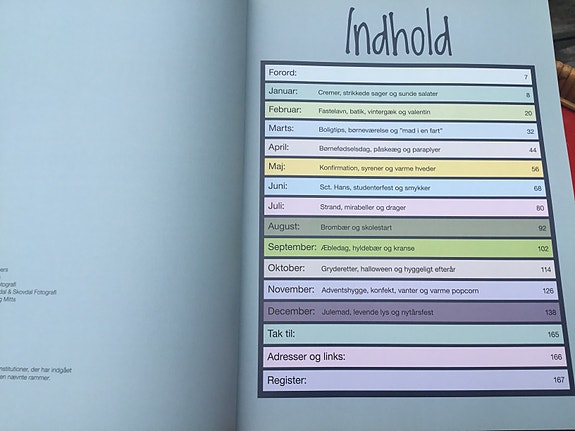 Indhold
Forord: 7
Januar: Cremer, strikkede sager og sunde salater 8
Februar: Fastelavn, batik, vintergæk og valentin 20
Marts: Boligtips, børneværelse og "mad i en fart" 32
April: Børnefødselsdag, påskeæg og paraplyer 44
Maj: Konfirmation, syrener og varme hveder 56
Juni: Sct. Hans, studenterfest og smykker 68
Juli: Strand, mirabeller og drager 80
August: Brombær og skolestart 92
September: Æbledag, hyldebær og kranse 102
Oktober: Gryderetter, halloween og hyggeligt efterår 114
November: Adventshygge, konfekt, vanter og varme popcorn 126
December: Julemad, levende lys og nytårsfest 138
Tak til: 165
Adresser og links: 166
Register: 167
& Skovdal Fotografi
Mitts
der har indgået
nævnte rammer.